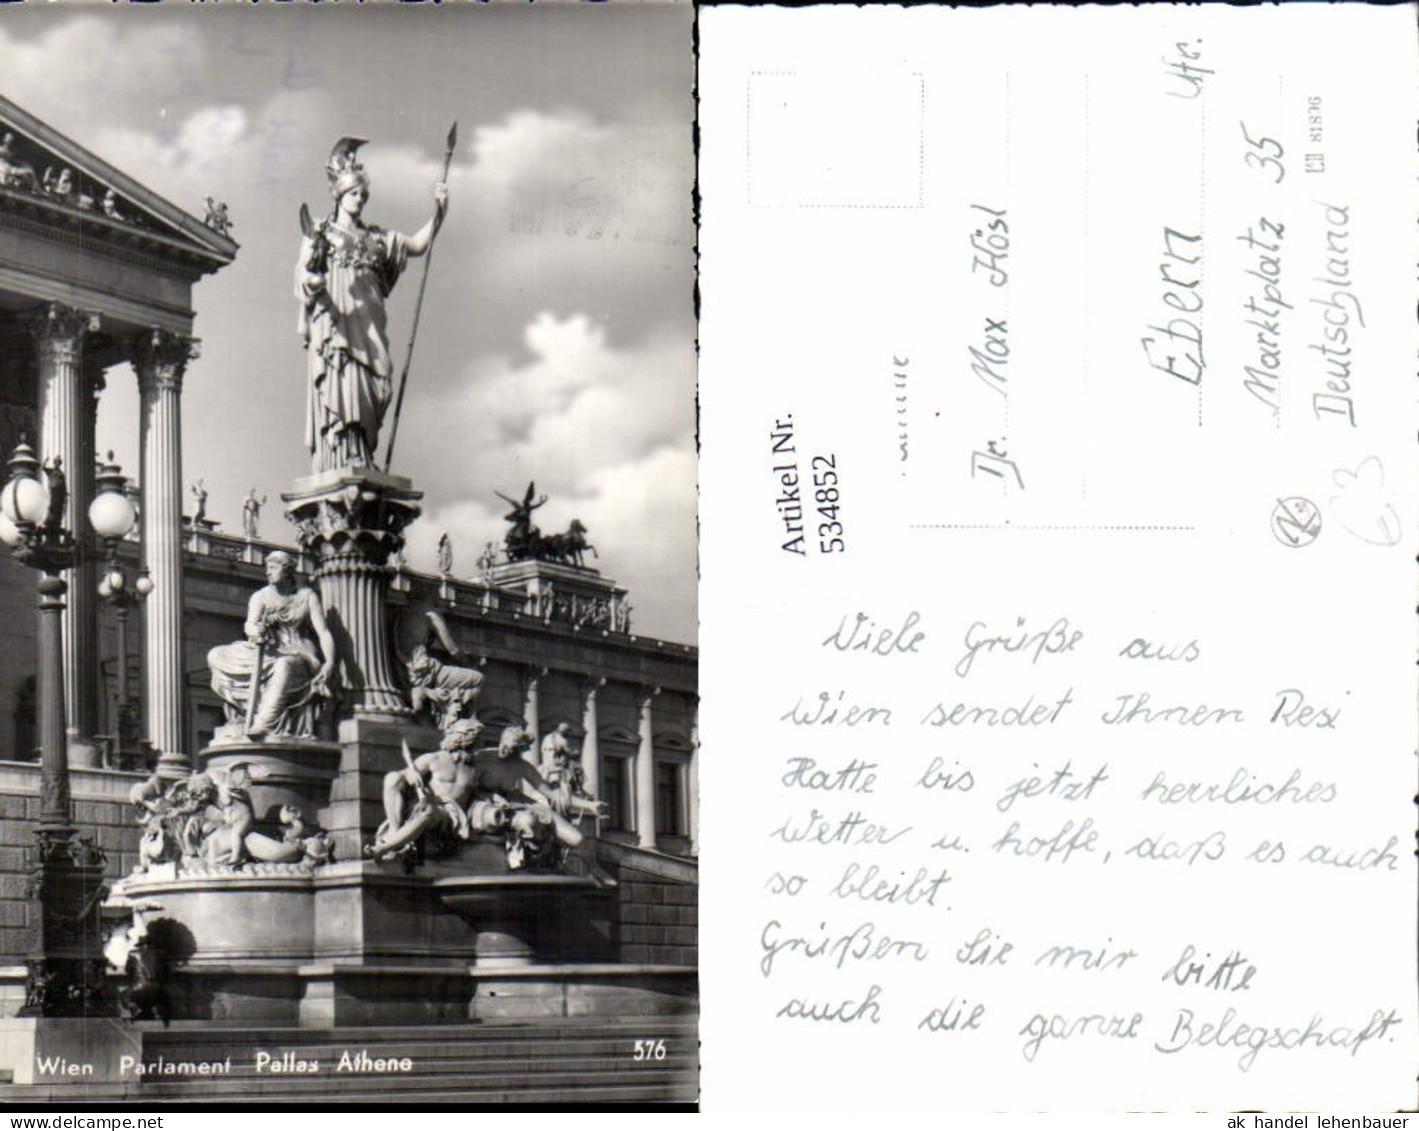 Wien Parlament Pallas Athene 576
Artikel Nr.
534852
Dr. Max Hösl
Ebern Ufr.
Marktplatz 35
Deutschland
81896
Viele Grüße aus
Wien sendet Ihnen Resi
Hatte bis jetzt herrliches
Wetter u. hoffe, daß es auch
so bleibt.
Grüßen Sie mir bitte
auch die ganze Belegschaft.
ak_handel_lehenbauer